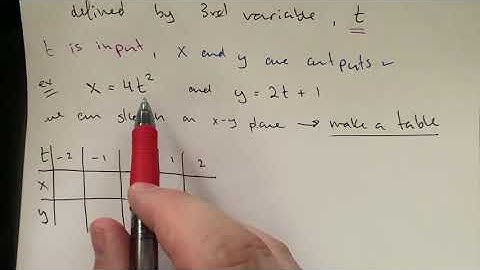 defined by 3rd variable, t
t is input, x and y are outputs
ex x = 4t² and y = 2t + 1
we can sketch on x-y plane → make a table
t -2 -1 1 2
x
y